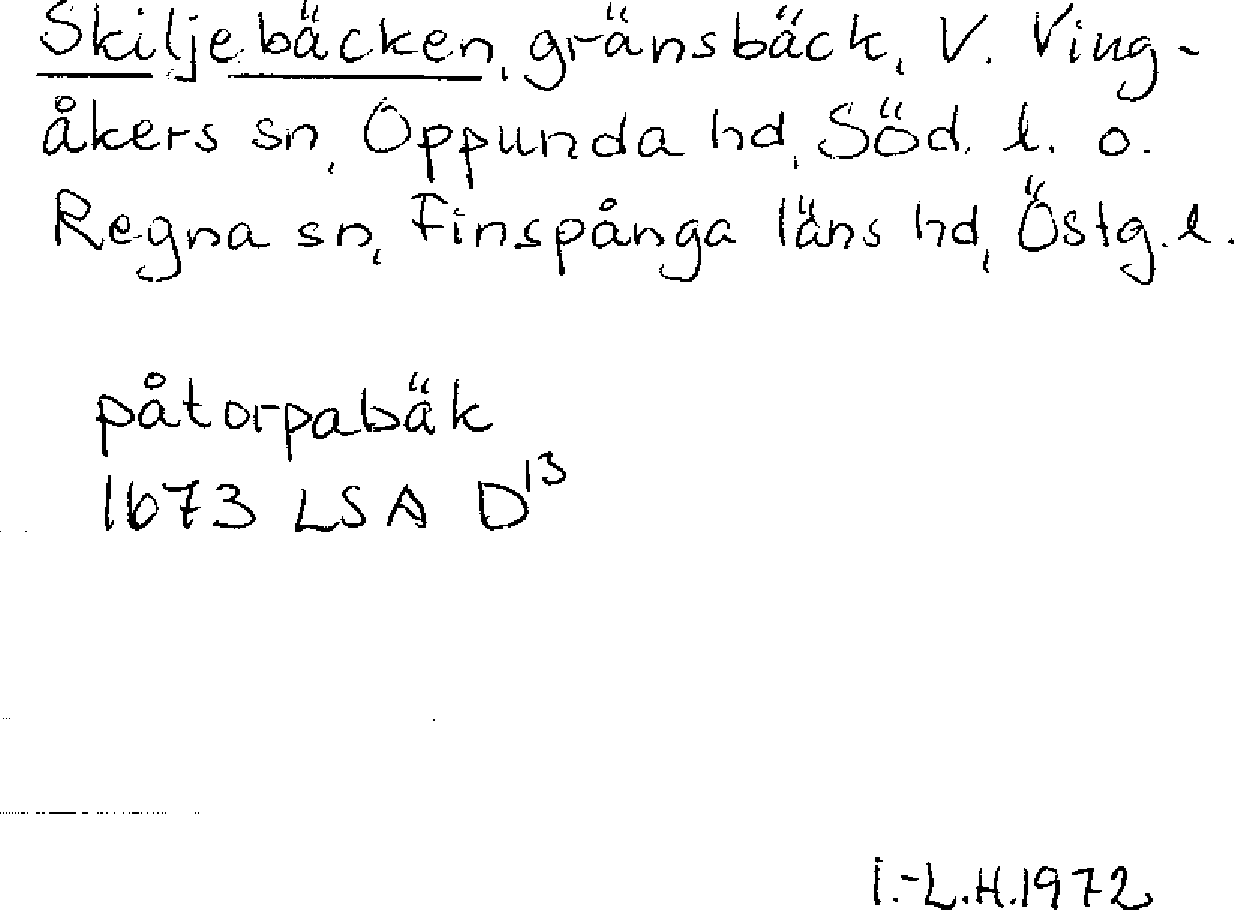 Skiljebäcken, gränsbäck, V. Ving-
åkers sn, Oppunda hd, Söd. l. o.
Regna sn, Finspånga läns hd, Östg. l.
påtorpabäk
1673 LSA D13
I.-L.H.1972